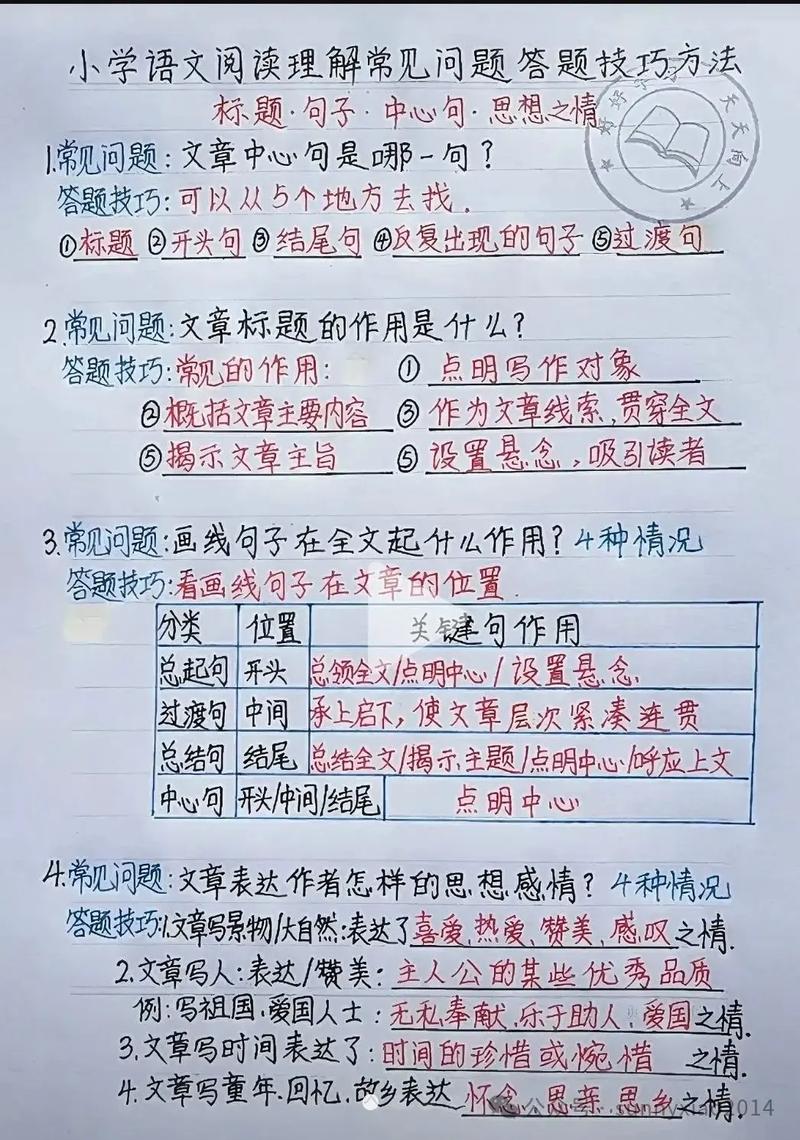 小学语文阅读理解常见问题答题技巧方法
标题·句子·中心句·思想之情
好好学习 天天向上
1.常见问题:文章中心句是哪一句?
答题技巧:可以从5个地方去找.
①标题 ②开头句 ③结尾句 ④反复出现的句子 ⑤过渡句
2.常见问题:文章标题的作用是什么?
答题技巧:常见的作用: ① 点明写作对象
②概括文章主要内容 ③ 作为文章线索,贯穿全文
⑤揭示文章主旨 ⑤ 设置悬念,吸引读者
3.常见问题:画线句子在全文起什么作用?4种情况
答题技巧:看画线句子在文章的位置.
分类 位置 关键句作用
总起句 开头 总领全文/点明中心/设置悬念.
过渡句 中间 承上启下,使文章层次紧凑连贯
总结句 结尾 总结全文/揭示主题/点明中心/呼应上文
中心句 开头/中间/结尾 点明中心
4.常见问题:文章表达作者怎样的思想感情?4种情况
答题技巧:1.文章写景物/大自然:表达了喜爱,热爱,赞美,感叹之情.
2.文章写人:表达/赞美:主人公的某些优秀品质
例:写祖国,爱国人士:无私奉献,乐于助人,爱国之情.
3.文章写时间表达了:时间的珍惜或惋惜 之情.
4.文章写童年.回忆,故乡表达 怀念,思亲,思乡之情.
公众号 2014